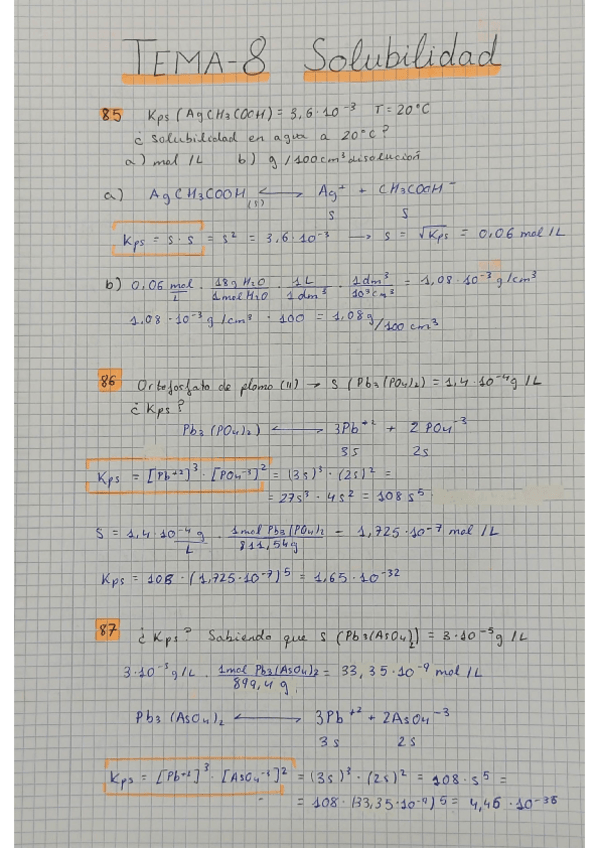 TEMA-8 Solubilidad
85 Kps (AgCH3COOH) = 3,6·10⁻³ T = 20°C
¿ solubilidad en agua a 20°C?
a) mol/L b) g/100cm³ disolución
a) AgCH3COOH (s) ⟷ Ag⁺ + CH3COOH⁻
s s
Kps = s·s = s² = 3,6·10⁻³ → s = √Kps = 0,06 mol/L
b) 0,06 mol/L · 18g H2O/1mol H2O · 1L/1dm³ · 1dm³/10³cm³ = 1,08·10⁻³ g/cm³
1,08·10⁻³ g/cm³ · 100 = 1,08g/100 cm³
86 Ortofosfato de plomo (II) → S (Pb3(PO4)2) = 1,4·10⁻⁴ g/L
¿ Kps?
Pb3 (PO4)2) ⟷ 3Pb⁺² + 2 PO4⁻³
3s 2s
Kps = [Pb⁺²]³ · [PO4⁻³]² = (3s)³ · (2s)² =
= 27s³ · 4s² = 108 s⁵
S = 1,4·10⁻⁴ g/L · 1mol Pb3(PO4)2/811,54g = 1,725·10⁻⁷ mol/L
Kps = 108 · (1,725·10⁻⁷)⁵ = 1,65·10⁻³²
87 ¿ Kps? Sabiendo que S (Pb3(AsO4)2) = 3·10⁻⁵ g/L
3·10⁻⁵ g/L · 1mol Pb3(AsO4)2/899,4 g = 33,35·10⁻⁹ mol/L
Pb3 (AsO4)2 ⟷ 3Pb⁺² + 2AsO4⁻³
3s 2s
Kps = [Pb⁺²]³ · [AsO4⁻³]² = (3s)³ · (2s)² = 108·s⁵ =
= 108·(33,35·10⁻⁹)⁵ = 4,46·10⁻³⁶